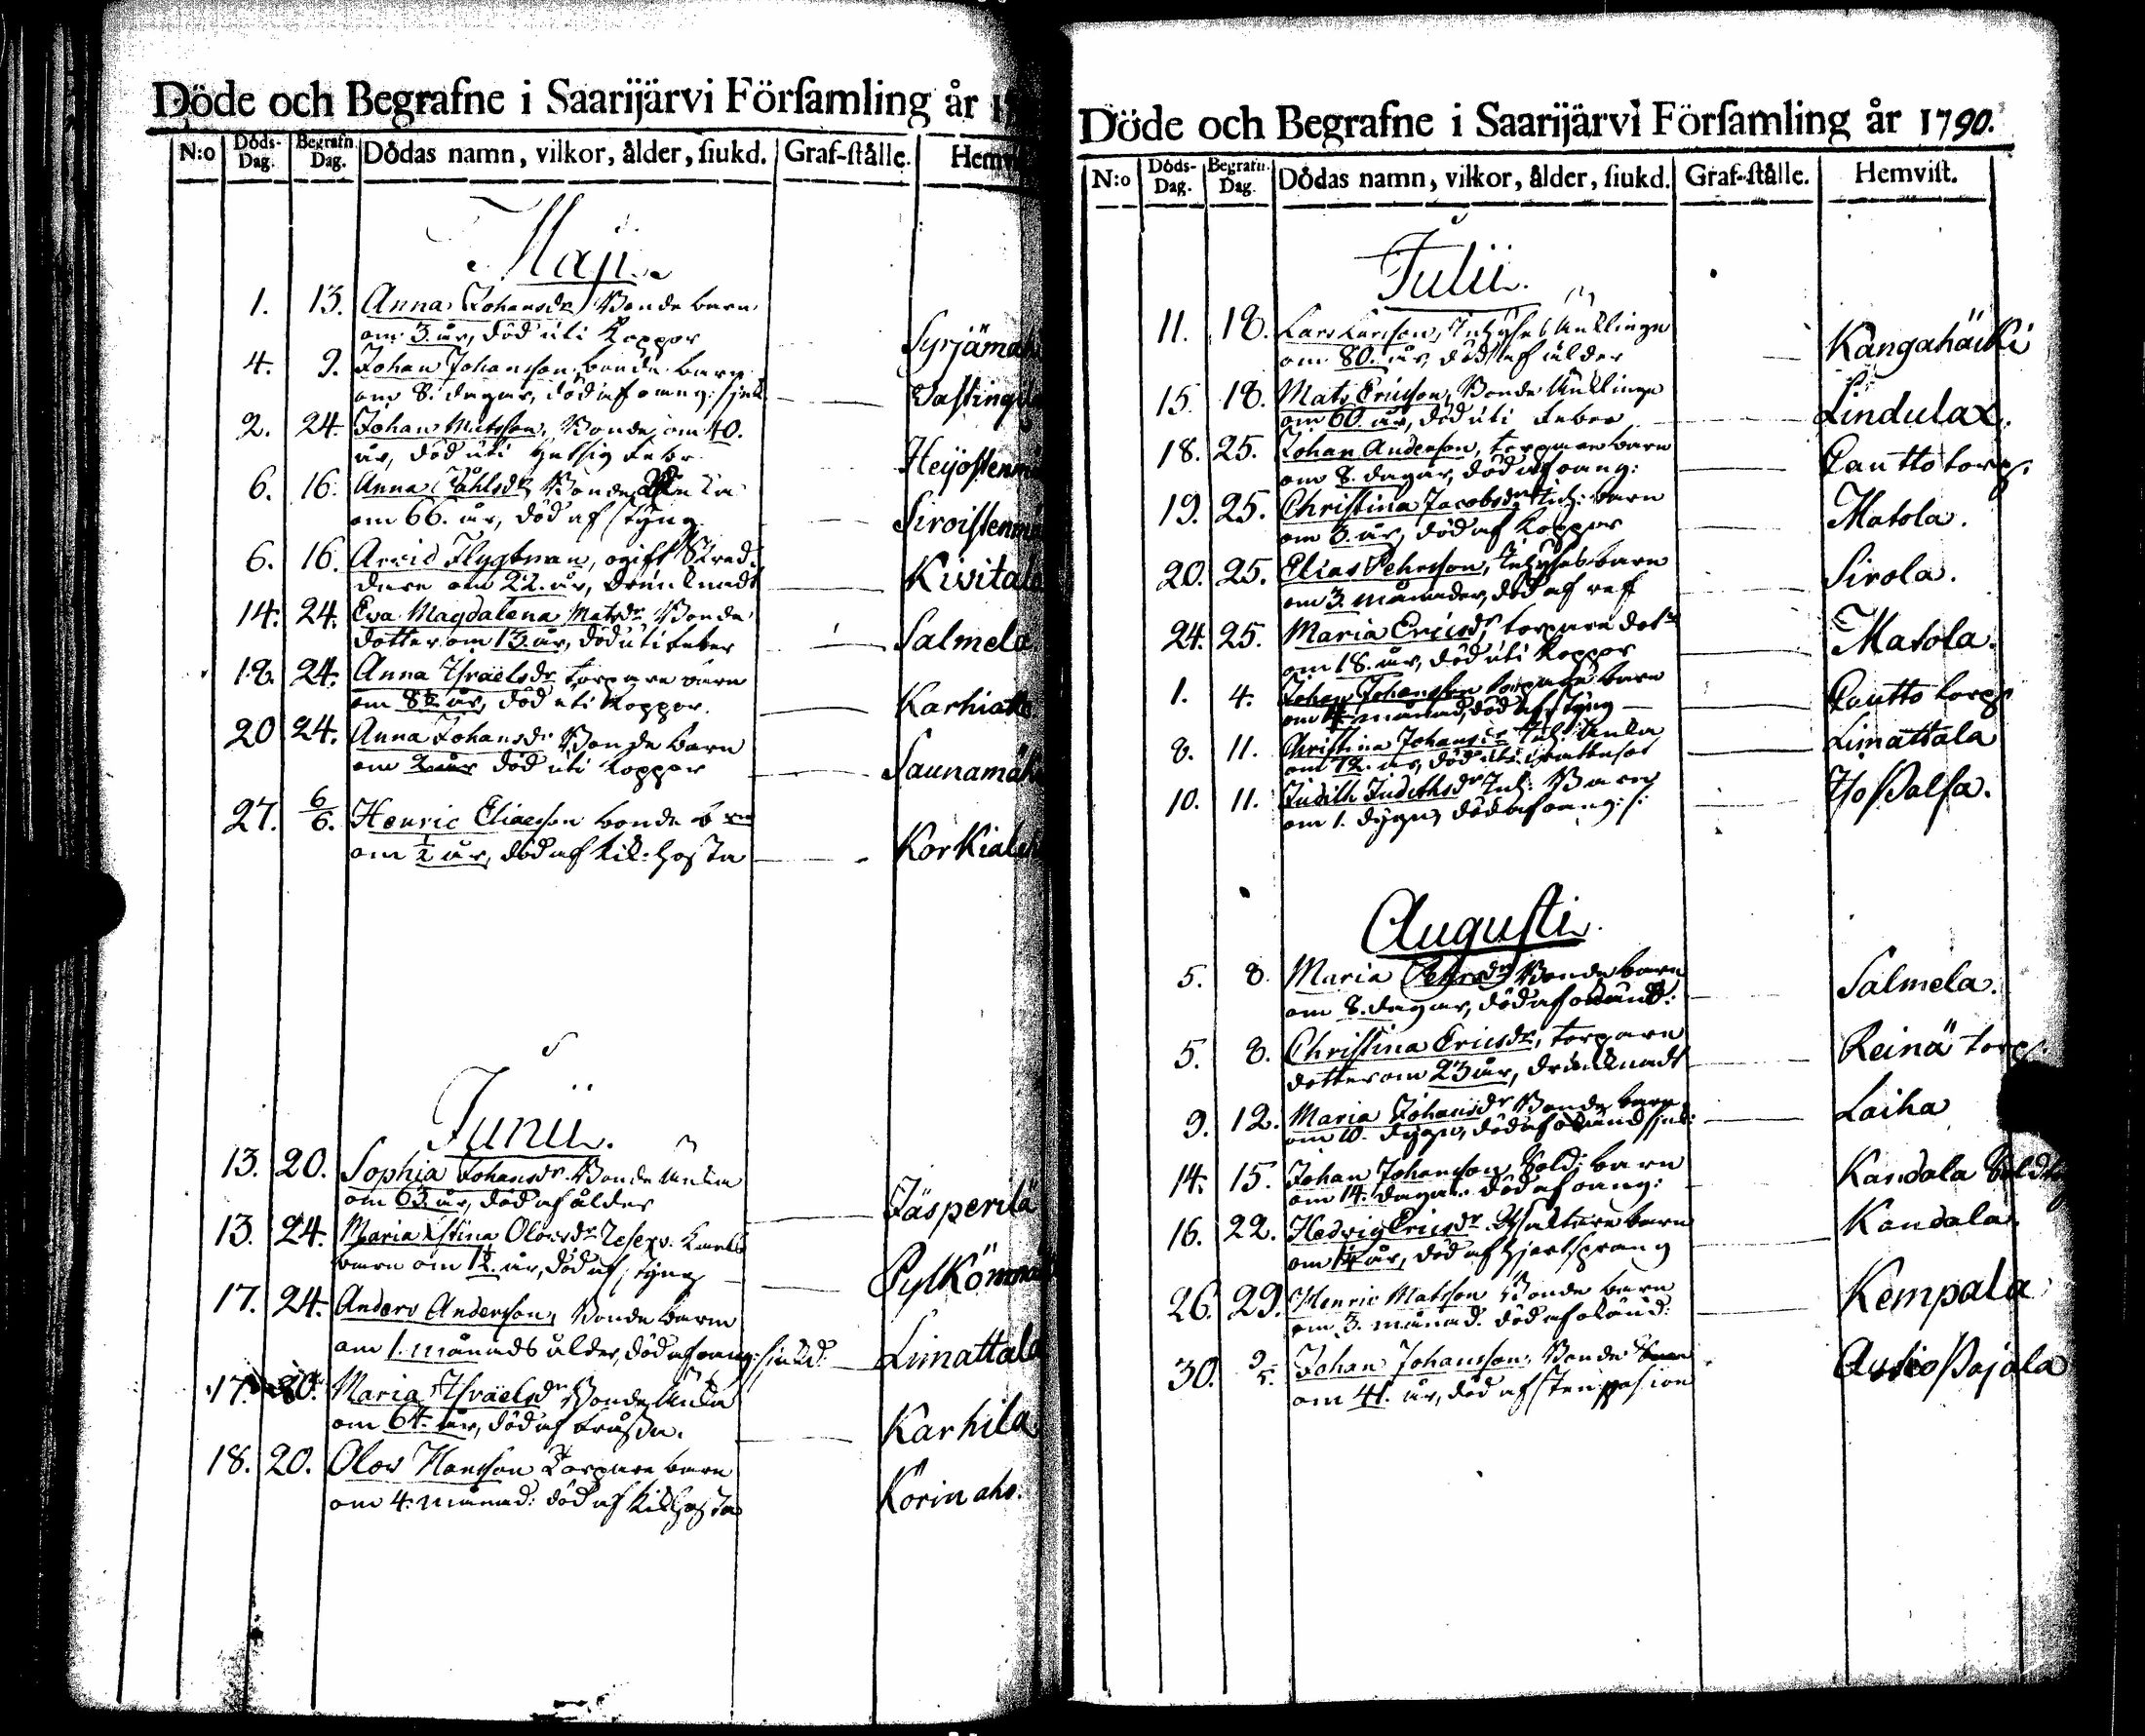 Döde och Begrafne i Saarijärvi Förſamling år
N:o Döds-Dag. Begrafn. Dag. Dödas namn, vilkor, ålder, ſiukd. Graf-ſtälle.
Maji
1. 13. Anna Johansdr Bonde barn
om 3. år, död uti Koppor
4. 9. Johan Johansson bonde barn
om 8. dagar, död af oang: sjukd
2. 24. Johan Matsson, Bonde om 40.
år, död uti hetsig Feber
6. 16. Anna Påhlsdr Bonde Enka
om 66. år, död af styng
6. 16. Arvid Flygtman, ogift Skred-
dare om 22. år, drunknadt
14. 24. Eva Magdalena Matsdr Bonde
Salmela
dotter om 13. år, död uti Feber
18. 24. Anna Israelsdr torpare barn
om 8½ år, död uti Koppor.
20 24. Anna Johansdr Bonde barn
om 2 år död uti Koppor
27. 6/6. Henric Eliaesson bonde barn
om ½ år, död af Kik: hosta
Junii.
13. 20. Sophia Johansdr Bonde Enka
om 63. år, död af ålder
Jäsperilä
13. 24. Maria Stina Olofsdr Reserv: Karls
barn om 1½. år, död af styng
17. 24. Anders Andersson, Bonde barn
om 1. månads ålder, död af oang: sjukd:
Limattala
17. 20. Maria Israelsdr Bonde Enka
om 64. år, död af
Karhila
18. 20. Olov Hansson Torpare barn
om 4. månad: död af Kikhosta
Korin aho.
Döde och Begrafne i Saarijärvi Förſamling år 1790.
N:o Döds-Dag. Begrafn. Dag. Dödas namn, vilkor, ålder, ſiukd. Graf-ſtälle. Hemviſt.
Julii.
11. 18. Lars Larsson, Inhyses Enklinge
om 80. år, död af ålder
Kangahäcki
15. 18. Mats Ericsson, Bonde Enklinge
om 60. år, död uti Feber
Lindulax.
18. 25. Johan Andersson, torpare barn
om 8. dagar, död af oang:
Pautto torp.
19. 25. Christina Jacobsdr Inh: barn
om 3. år, död af Koppor
Matola.
20. 25. Elias Pehrsson, Inhyses barn
om 3. månader, död af ref
Sirola.
24. 25. Maria Ericsdr torpare dotr
om 18. år, död uti Koppor
Matola.
1. 4. Johan Johansson torpare barn
om månad, död af styng
Pautto torp
8. 11. Christina Johansdr Inh: Enka
om 72. år, död uti Vattusot
Limattala
10. 11. Judith Judithsdr Inh: Barn
om 1. dygn, död af oang: s:
Augusti
5. 8. Maria Pehrsdr Bonde barn
om 8. dagar, död af okänd:
Salmela.
5. 8. Christina Ericsdr, torpare
dotter om 23 år, drunknadt
Reinä torp.
9. 12. Maria Johansdr Bonde barn
om 10. dygn, död af okänd sjuk:
Laiha
14. 15. Johan Johansson Sold: barn
om 14. dagar död af oang:
16. 22. Hedvig Ericsdr barn
om 1¼ år, död af hjertsprång
26. 29. Henric Matsson Bonde barn
om 3. månad. död af okänd:
Kempala
30. 9/5. Johan Johansson, Bonde Son
om 41. år, död af stenpasion